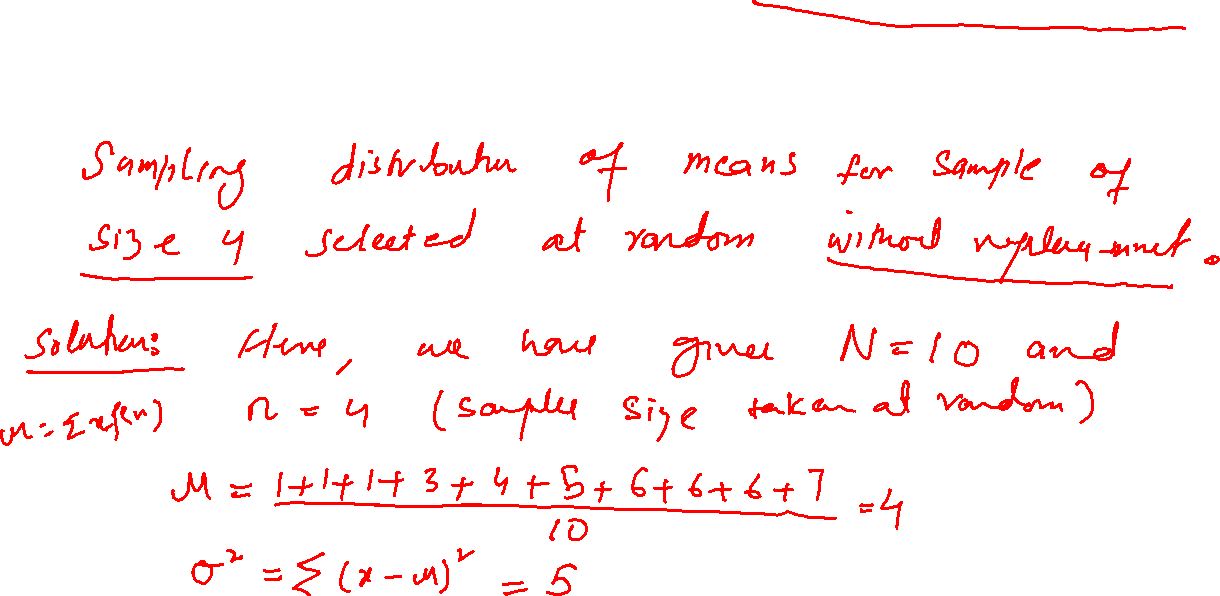 Sampling distribution of means for sample of
size 4 selected at random without replacement.
Solution: Here, we have given N = 10 and
n = 4 (samples size taken at random)
μ = Σ x f(x)
μ = 1+1+1+3+4+5+6+6+6+7 / 10 = 4
σ² = Σ (x - μ)² = 5